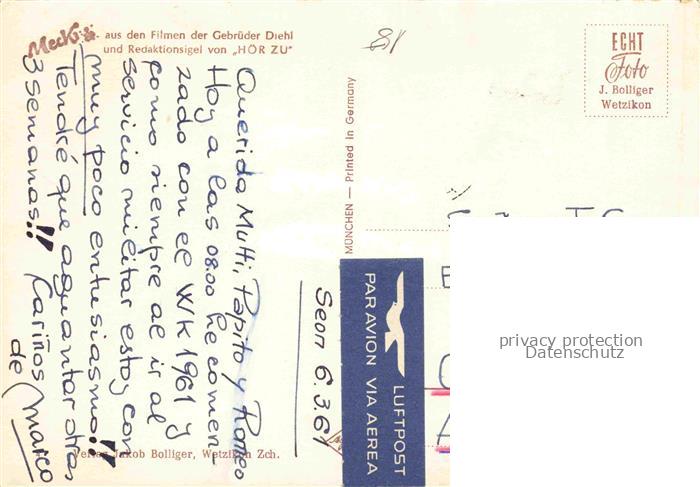 Mecki
aus den Filmen der Gebrüder Diehl
und Redaktionsigel von „HÖR ZU"
ECHT
Foto
J. Bolliger
Wetzikon
MÜNCHEN — Printed in Germany
Seon 6.3.61
Querida Mutti, Papito y Romeo
Hoy a las 08.00 he comen-
zado con el WK 1961 y
como siempre al ir al
servicio militar estoy con
muy poco entusiasmo!!
Tendré que aguantar otras
3 semanas!! Cariños
de Marco
Verlag Jakob Bolliger, Wetzikon Zch.
LUFTPOST
PAR AVION VIA AEREA
privacy protection
Datenschutz